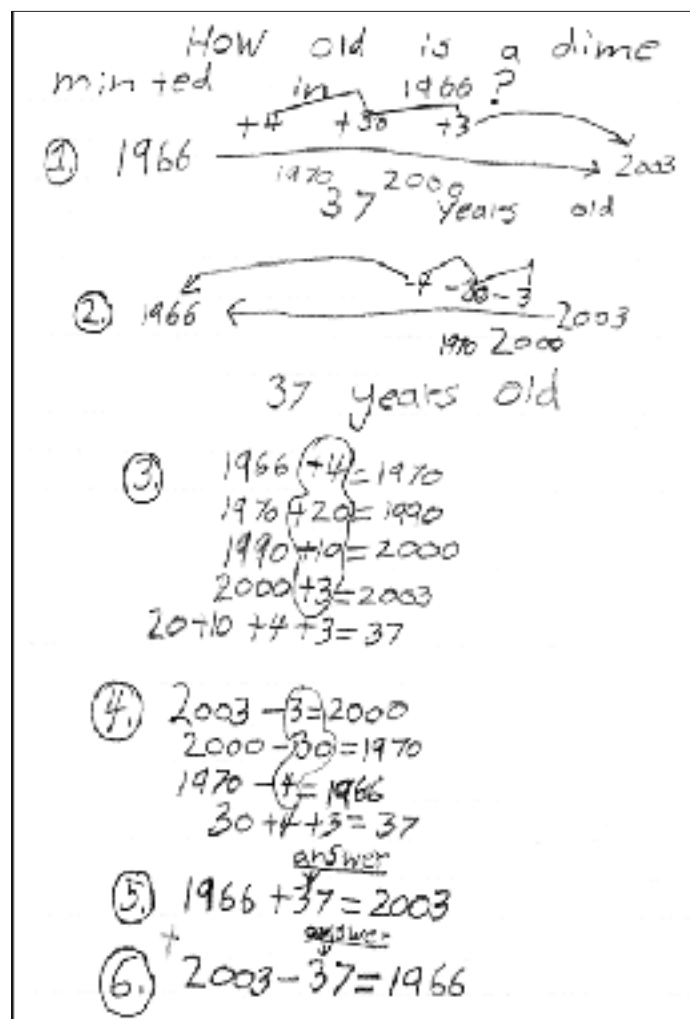 How old is a dime
minted in 1966?
+4 +30 +3
1. 1966 2003
1970 2000
37 years old
-4 -30 -3
2. 1966 2003
1970 2000
37 years old
3. 1966 +4=1970
1970 +20=1990
1990 +10=2000
2000 +3=2003
20+10+4+3=37
4. 2003 -3=2000
2000-30=1970
1970 -4=1966
30+4+3=37
answer
5. 1966 +37=2003
answer
6. 2003-37=1966